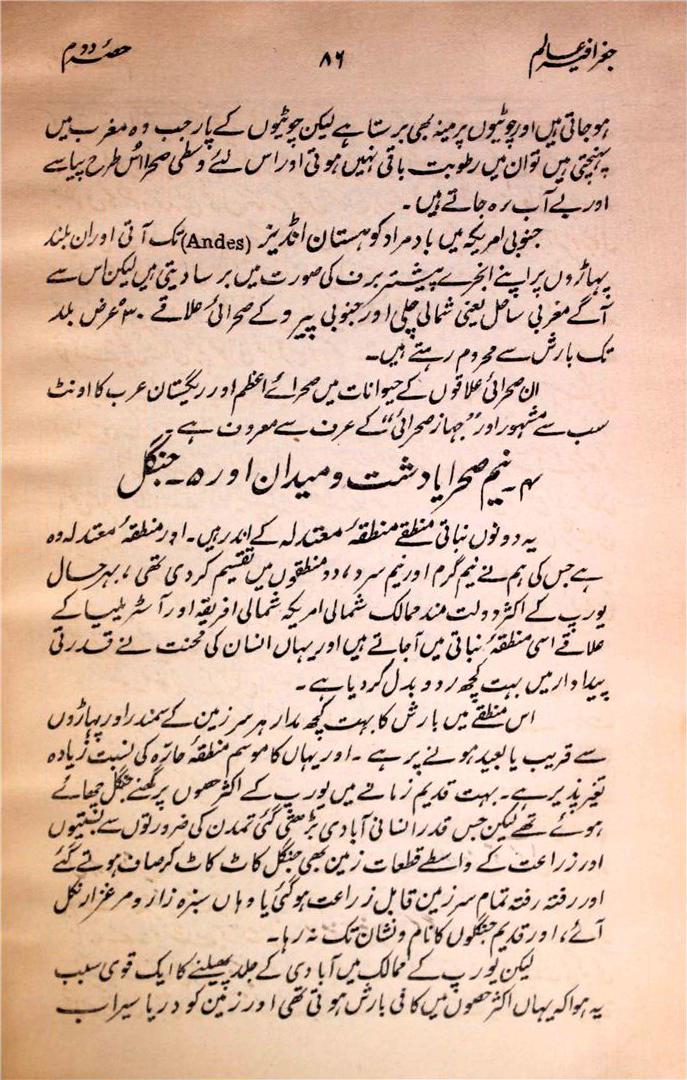 جغرافیہ عالم ۸۶ حصۂ دوم
ہوجاتی ہیں اور چوٹیوں پر مینہ بھی برستا ہے لیکن چوٹیوں کے پار جب وہ مغرب میں
پہنچتی ہیں تو ان میں رطوبت باقی نہیں ہوتی اور اس لئے وسطی صحرا اُس طرح پیاسے
اور بے آب رہ جاتے ہیں ۔
جنوبی امریکہ میں باد مراد کوہستان انڈیز (Andes) تک آتی اور ان بلند
پہاڑوں پر اپنے ابخرے پیشتر برف کی صورت میں برسا دیتی ہیں لیکن اس سے
آگے مغربی ساحل یعنی شمالی چلی اور جنوبی پیرو کے صحرائی علاقے ۳۰° عرض بلد
تک بارش سے محروم رہتے ہیں۔
ان صحرائی علاقوں کے حیوانات میں صحرائے اعظم اور ریگستان عرب کا اونٹ
سب سے مشہور اور ”جہاز صحرائی“ کے عرف سے معروف ہے ۔
۴۔ نیم صحرا یا دشت و میدان اور ۵۔ جنگل
یہ دونوں نباتی منطقے منطقۂ معتدلہ کے اندر ہیں۔ اور منطقۂ معتدلہ وہ
ہے جس کی ہم نے نیم گرم اور نیم سرد، دو منطقوں میں تقسیم کر دی تھی ، بہر حال
یورپ کے اکثر دولت مند ممالک شمالی امریکہ شمالی افریقہ اور آسٹریلیا کے
علاقے اسی منطقۂ نباتی میں آجاتے ہیں اور یہاں انسان کی محنت نے قدرتی
پیداوار میں بہت کچھ ردو بدل کر دیا ہے ۔
اس منطقے میں بارش کا بہت کچھ مدار ہر سرزمین کے سمندر اور پہاڑوں
سے قریب یا بعید ہونے پر ہے ۔ اور یہاں کا موسم منطقۂ حارّہ کی نسبت زیادہ
تغیر پذیر ہے۔ بہت قدیم زمانے میں یورپ کے اکثر حصوں پر گھنے جنگل چھائے
ہوئے تھے لیکن جس قدر انسانی آبادی بڑھتی گئی تمدن کی ضرورتوں سے بستیوں
اور زراعت کے واسطے قطعات زمین بھی جنگل کاٹ کاٹ کر صاف ہوتے گئے
اور رفتہ رفتہ تمام سرزمین قابل زراعت ہوگئی یا وہاں سبزہ زار و مرغزار نکل
آئے ، اور قدیم جنگلوں کا نام و نشان تک نہ رہا۔
لیکن یورپ کے ممالک میں آبادی کے جلد پھیلنے کا ایک قوی سبب
یہ ہوا کہ یہاں اکثر حصوں میں کافی بارش ہوتی تھی اور زمین کو دریا سیراب